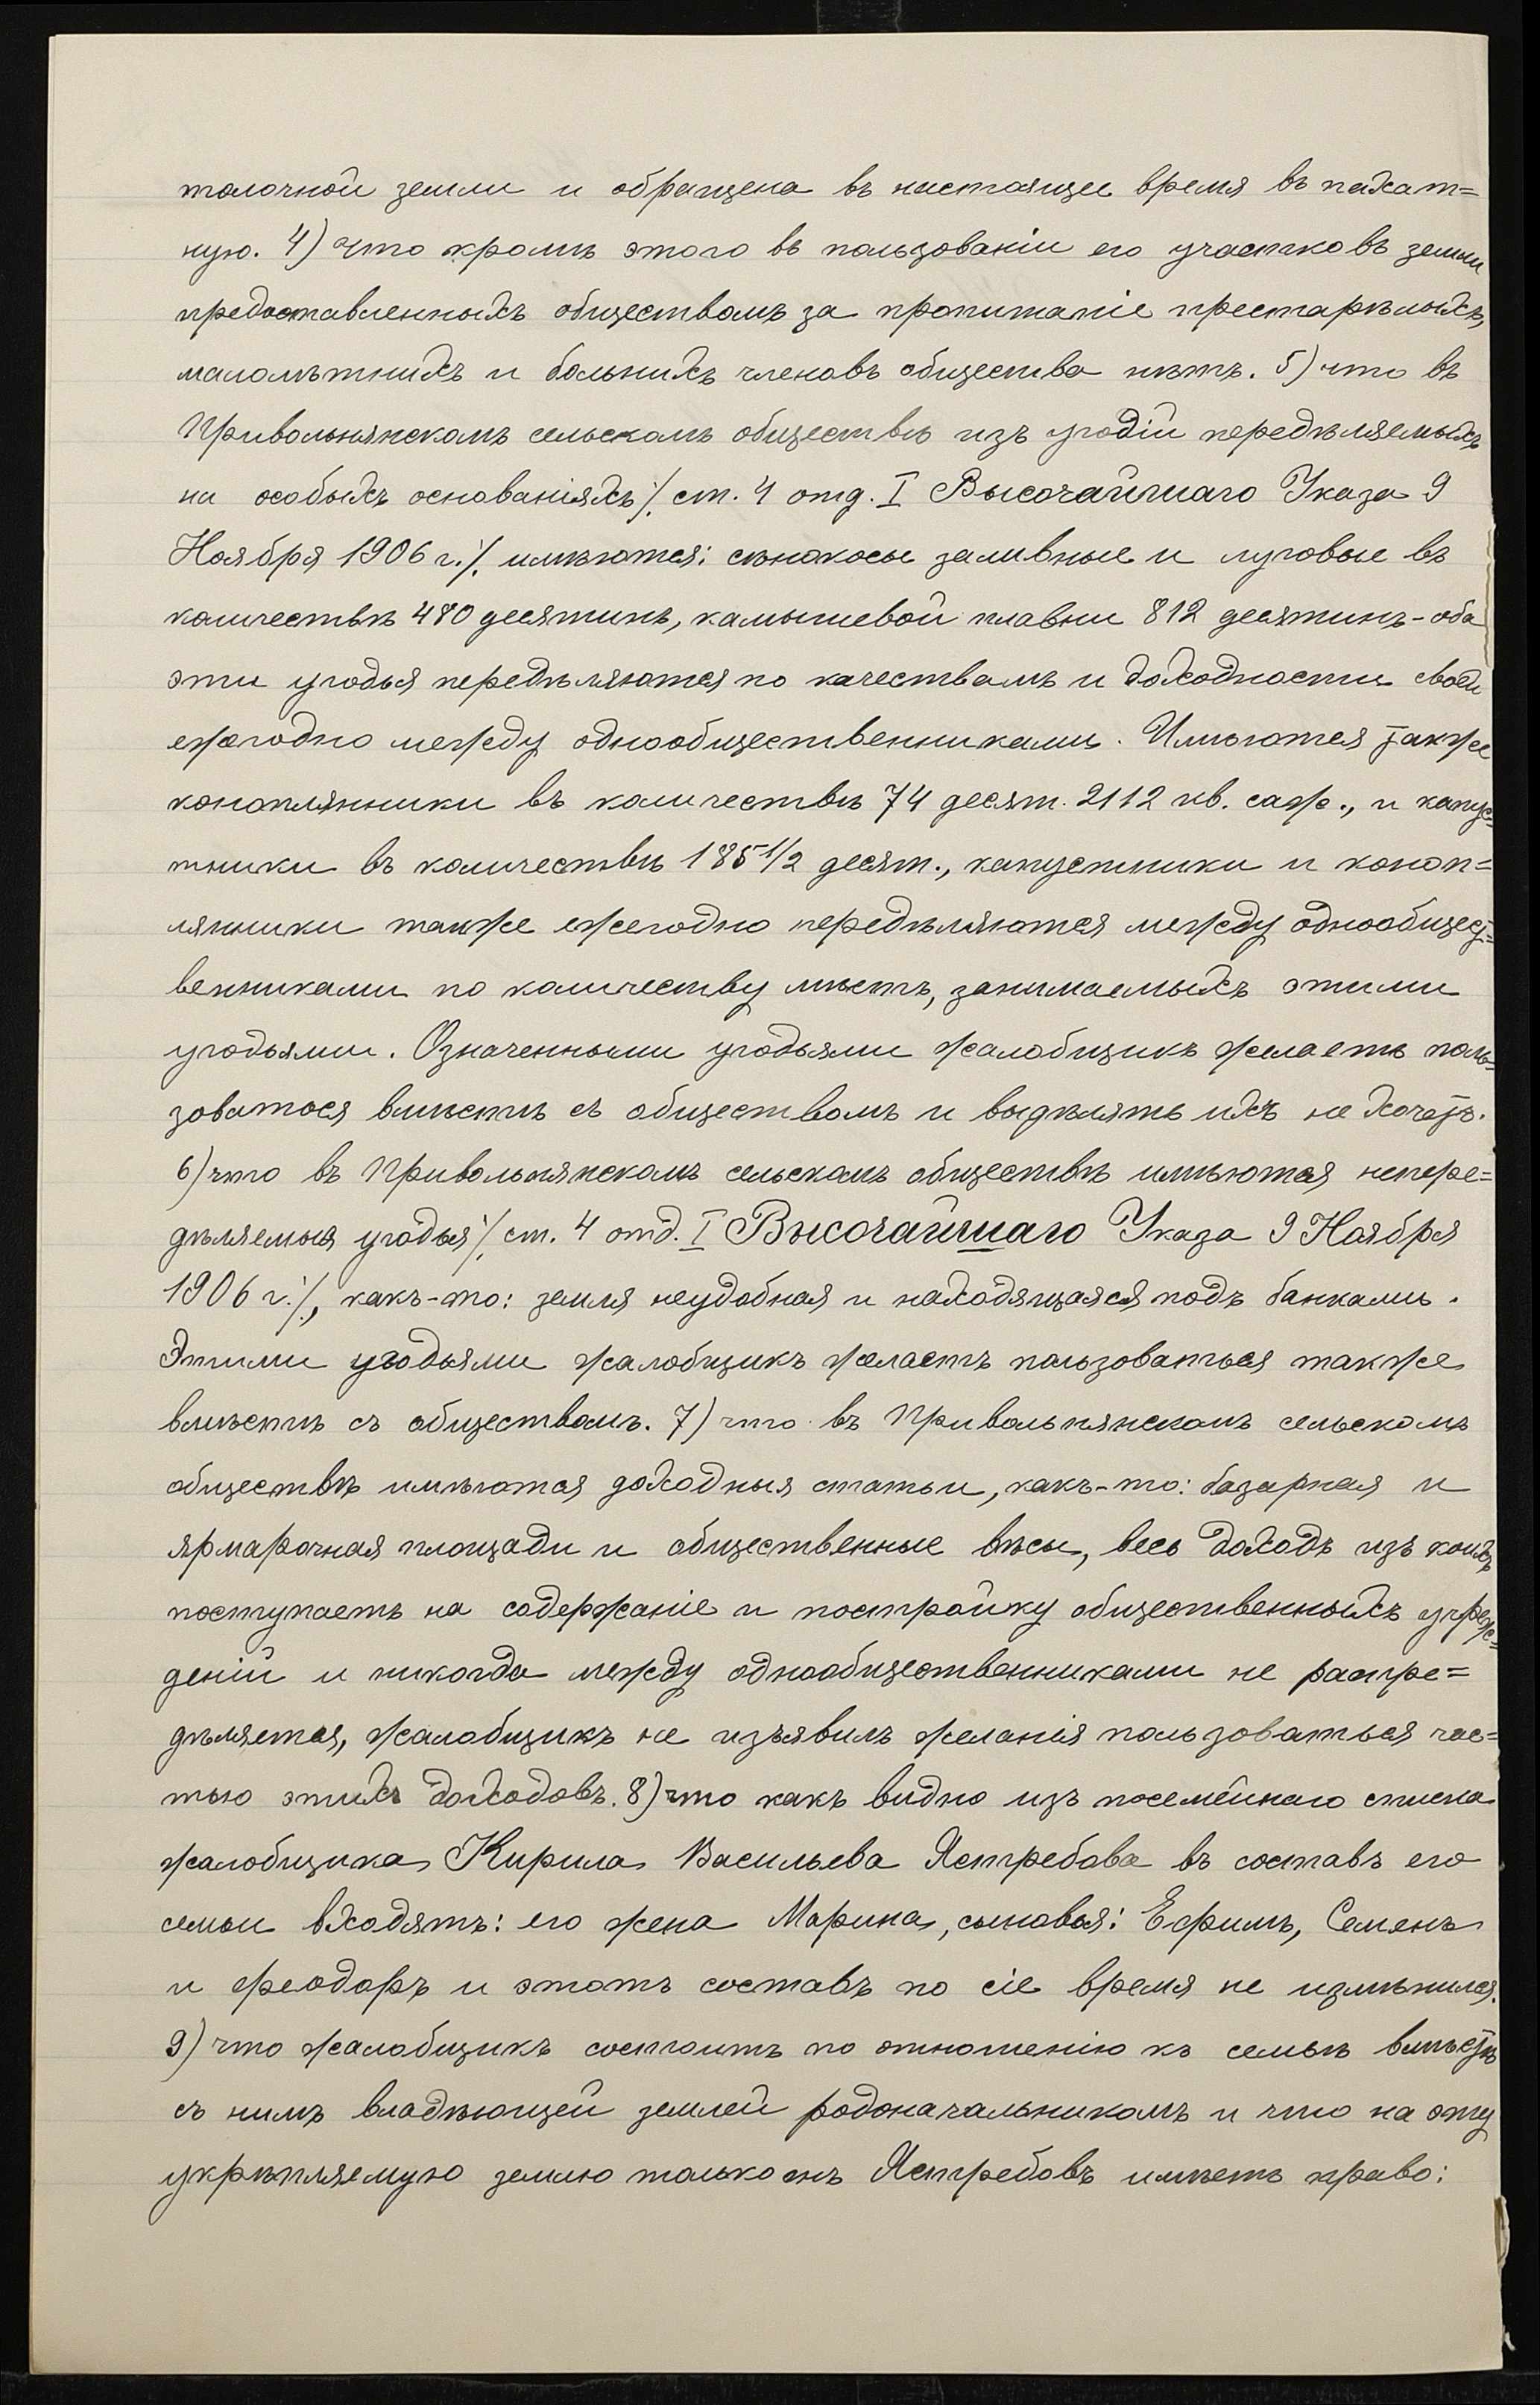 толочной земли и обращена въ настоящее время въ пахат=
ную. 4) что кромѣ этого въ пользованіи его участковъ земли
предоставленныхъ обществомъ за пропитаніе престарѣлыхъ,
малолѣтнихъ и больныхъ членовъ общества нѣтъ. 5) что въ
Привольнянскомъ сельскомъ обществѣ изъ угодій передѣляемыхъ
на особыхъ основаніяхъ ./. ст. 4 отд. I Высочайшаго Указа 9
Ноября 1906 г. ./. имѣются: сѣнокосы заливные и луговые въ
количествѣ 480 десятинъ, камышевой плавни 812 десятинъ - оба
эти угодья передѣляются по качествамъ и доходности своей
ежегодно между однообщественниками. Имѣются также
коноплянники въ количествѣ 74 десят. 2112 кв. саж., и капус=
тники въ количествѣ 185 1/2 десят., капустники и коноп=
лянники также ежегодно передѣляются между однообщест=
венниками по количеству мѣстъ, занимаемыхъ этими
угодьями. Означенными угодьями жалобщикъ желаетъ поль=
зоваться вмѣстѣ съ обществомъ и выдѣлять ихъ не хочетъ.
6) что въ Привольнянскомъ сельскомъ обществѣ имѣются непере=
дѣляемыя угодья ./. ст. 4 отд. I Высочайшаго Указа 9 Ноября
1906 г. ./., какъ-то: земля неудобная и находящаяся подъ банками.
Этими угодьями жалобщикъ желаетъ пользоваться также
вмѣстѣ съ обществомъ. 7) что въ Привольнянскомъ сельскомъ
обществѣ имѣются доходныя статьи, какъ-то: базарная и
ярмарочная площади и общественные вѣсы, весь доходъ изъ коихъ
поступаетъ на содержаніе и постройку общественныхъ учреж=
деній и никогда между однообщественниками не распре=
дѣляется, жалобщикъ не изъявилъ желанія пользоваться час=
тью этихъ доходовъ. 8) что какъ видно изъ посемейнаго списка
жалобщика Кирила Васильева Ястребова въ составъ его
семьи входятъ: его жена Марина, сыновья: Ефимъ, Семенъ
и Феодоръ и этотъ составъ по сіе время не измѣнился.
9) что жалобщикъ состоитъ по отношенію къ семьѣ вмѣстѣ
съ нимъ владѣющей землей родоначальникомъ и что на эту
укрѣпляемую землю только онъ Ястребовъ имѣетъ право: